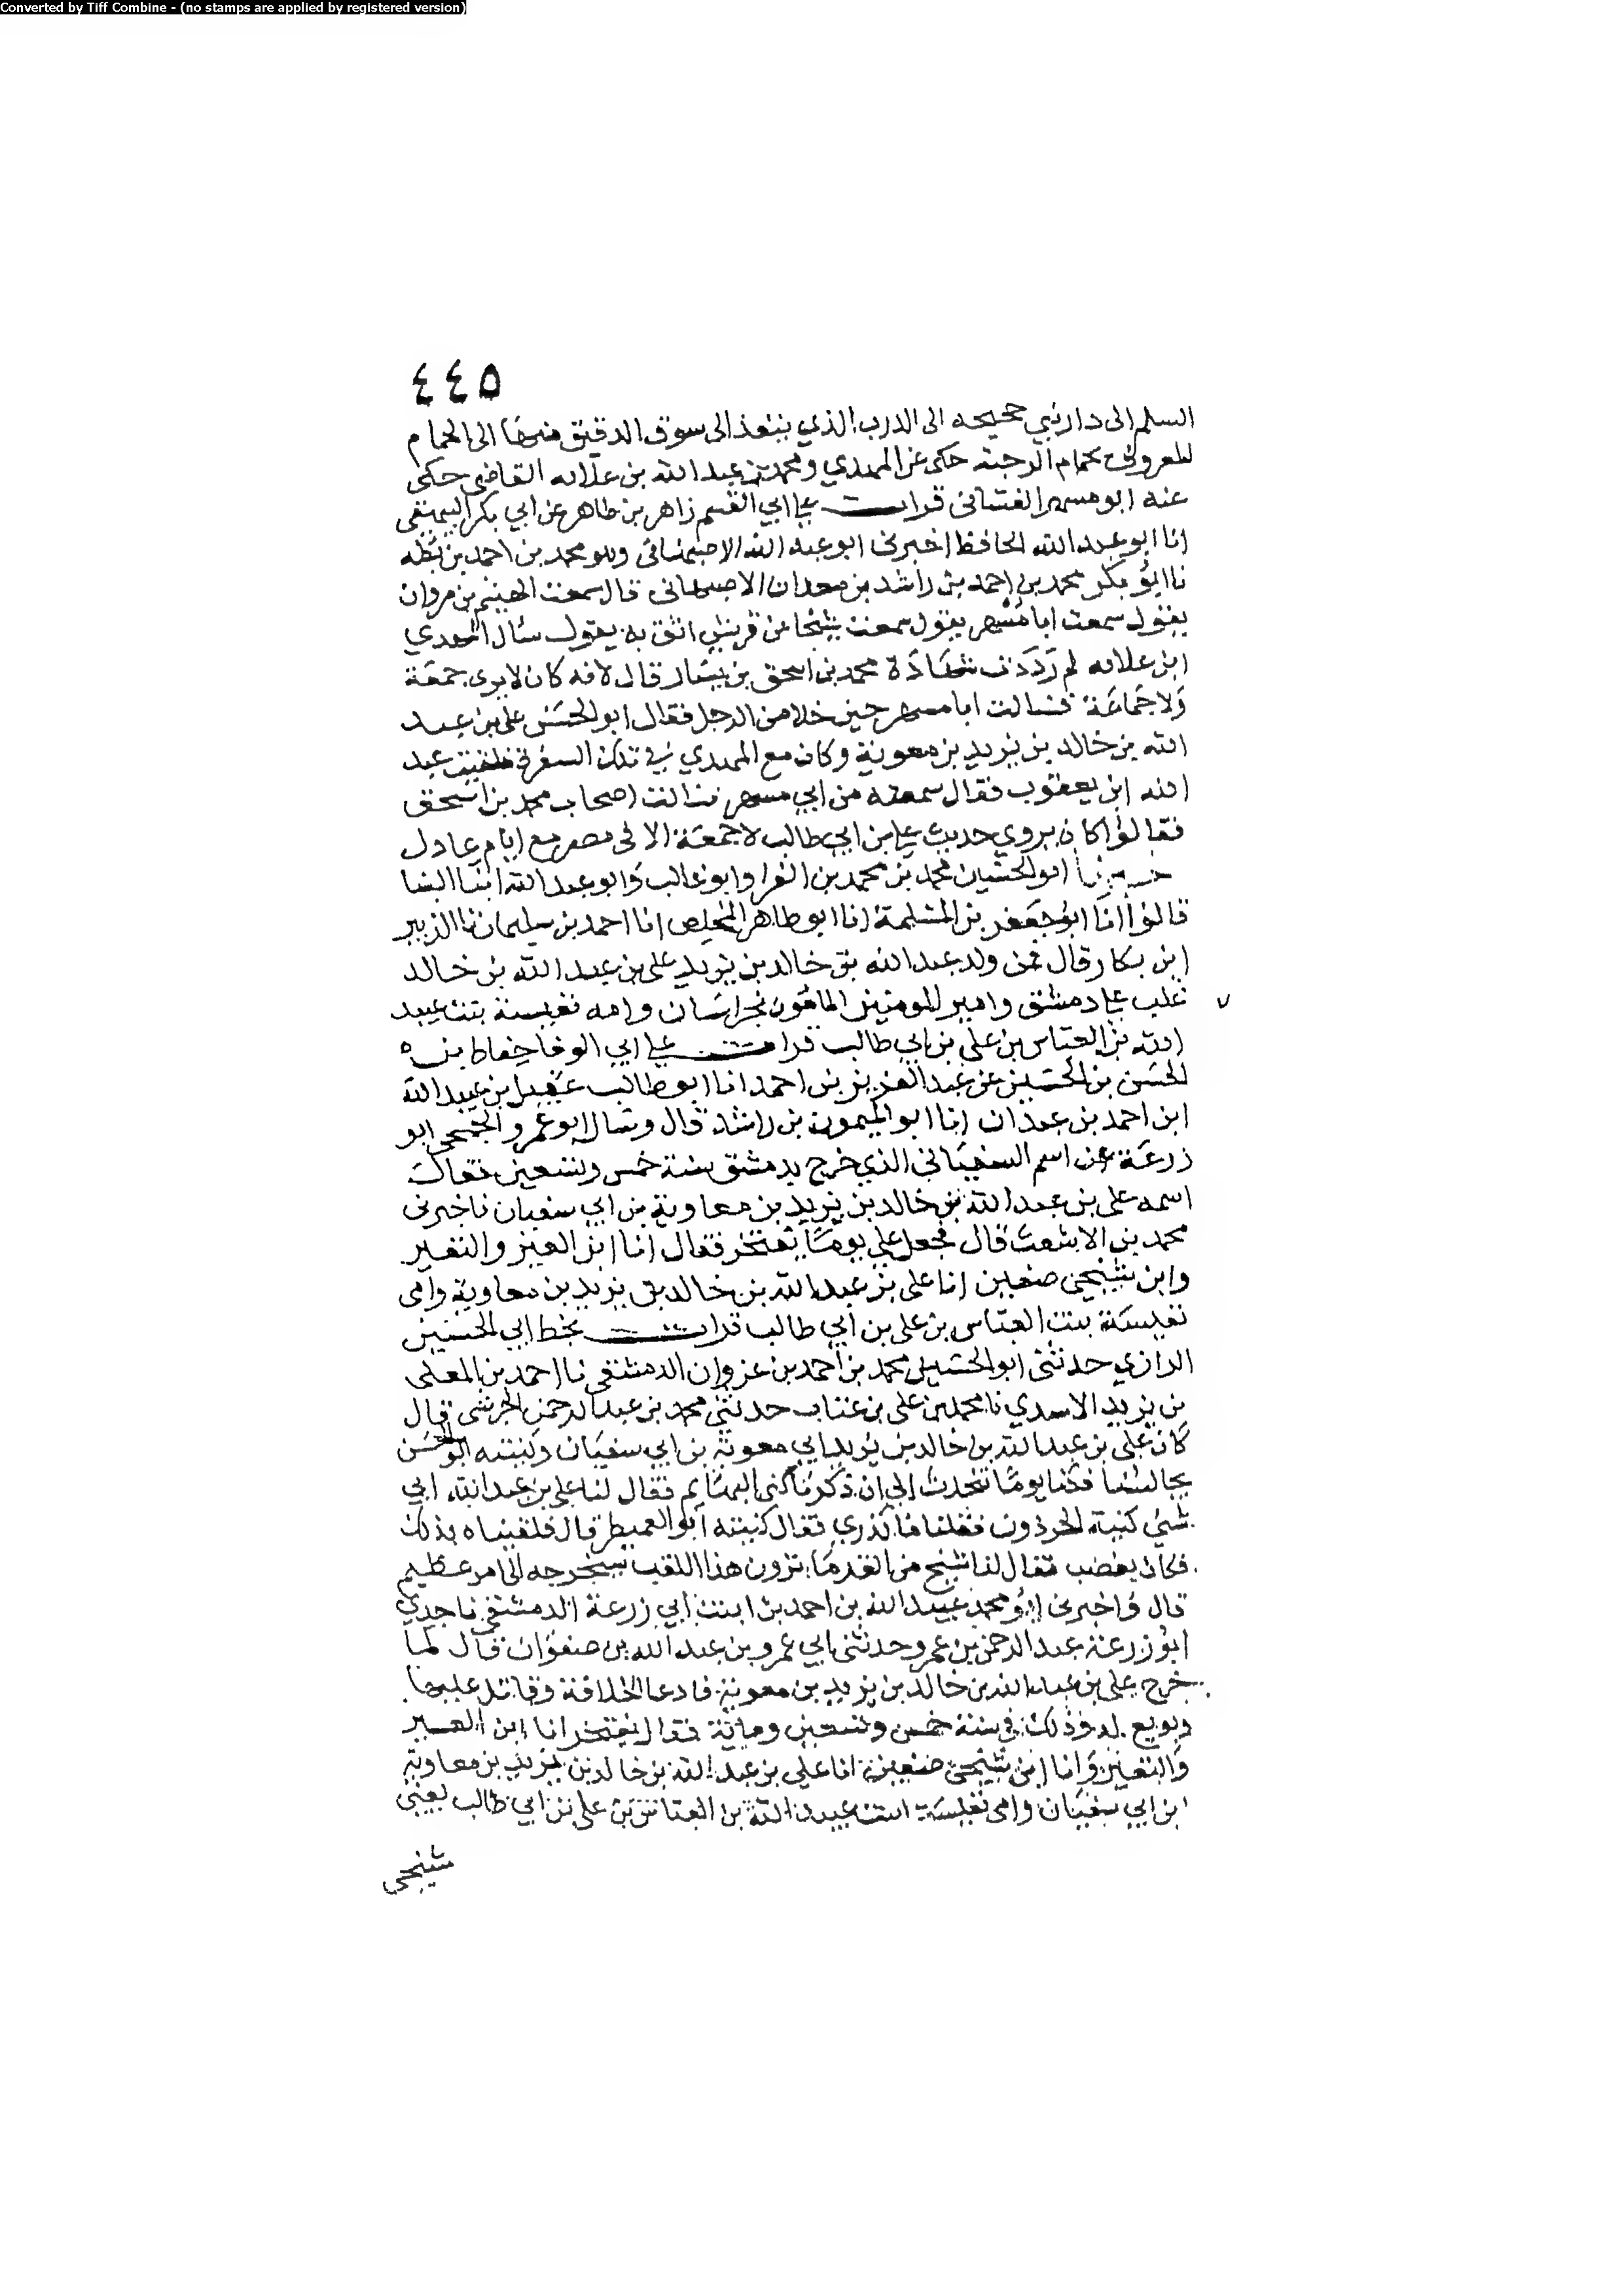 Converted by Tiff Combine - (no stamps are applied by registered version)
٤٤٥
السلم الى دار بني حجيجه الى الدرب الذي ينفذ الى سوق الدقيق منها الى الحمام
المعروف بحمام الرحبة حكى عن المهدي ومحمد بن عبد الله بن علاثه القاضي حكى
عنه ابو مسهر الغساني قرات على ابي القسم زاهر بن طاهر عن ابي بكر البيهقي
انا ابو عبد الله الحافظ اخبرني ابو عبد الله الاصبهاني وهو محمد بن احمد بن بطه
نا ابو بكر محمد بن احمد بن راشد بن معدان الاصبهاني قال سمعت الهيثم بن مروان
يقول سمعت ابا مسهر يقول سمعت شيخا من قريش اثق به يقول سال المهدي
ابن علاثه لم رددت شهادة محمد بن اسحق بن يسار قال لانه كان لا يرى جمعة
ولا جماعة فسالت ابا مسهر حين خلا من الرجل فقال ابو الحسن علي بن عبد
الله بن خالد بن يزيد بن معوية وكان مع المهدي في تلك السفرة فلقيت عبد
الله ابن يعقوب فقال سمعته من ابي مسهر فسالت اصحاب محمد بن اسحق
فقالوا كان يروي حديث علي بن ابي طالب لا جمعة الا في مصر مع امام عادل
ابو الحسين محمد بن محمد بن الفرا وابو غالب وابو عبد الله ابنا البنا
قالوا انا ابو جعفر بن المسلمة انا ابو طاهر المخلص انا احمد بن سليمان نا الزبير
ابن بكار قال فمن ولد عبد الله بن خالد بن يزيد علي بن عبد الله بن خالد
غلب على دمشق وامير المومنين المامون بخراسان وامه نفيسة بنت عبيد
الله بن العباس بن علي بن ابي طالب قرات على ابي الوفا حفاظ بن
الحسن بن الحسين عن عبد العزيز بن احمد انا ابو طالب عقيل بن عبيد الله
ابن احمد بن عبدان انا ابو الميمون بن راشد قال وسال ابو عمرو الجمحي ابو
زرعة عن اسم السفياني الذي خرج بدمشق سنة خمس وتسعين فقال
اسمه علي بن عبد الله بن خالد بن يزيد بن معاوية بن ابي سفيان فاخبرني
محمد بن الاشعث قال فجعل علي يوما يفتخر فقال انا ابن العير والنفير
وابن شيخي صفين انا علي بن عبد الله بن خالد بن يزيد بن معاوية وامي
نفيسة بنت العباس بن علي بن ابي طالب قرات بخط ابي الحسين
الرازي حدثني ابو الحسين محمد بن احمد بن غزوان الدمشقي نا احمد بن المعلى
بن يزيد الاسدي نا محمد بن علي بن عتاب حدثني محمد بن عبد الرحمن الجرشي قال
كان علي بن عبد الله بن خالد بن يزيد ابي معوية بن ابي سفيان وكنيته ابو الحسن
يجالسنا فكنا يوما نتحدث الى ان ذكرنا كنى البهائم فقال لنا علي بن عبد الله اي
شيئ كنية الحرذون فقلنا ما ندري فقال كنيته ابو العميطر قال فلقبناه بذلك
فكان يغضب فقال لنا شيخ من القدما ترون هذا اللقب سيخرجه الى امر عظيم
قال واخبرني ابو محمد عبيد الله بن احمد بن ابنت ابي زرعة الدمشقي نا جدي
ابو زرعة عبد الرحمن بن عمرو حدثني ابي عمرو بن عبد الله بن صفوان قال لما
خرج علي بن عبد الله بن خالد بن يزيد بن معوية فادعا الخلافة وقاتل عليها
وبويع له وذلك في سنة خمس وتسعين وماية فقال يفتخر انا ابن العير
والنفير وانا ابن شيخي صفين انا علي بن عبد الله بن خالد بن يزيد بن معاوية
ابن ابي سفيان وامي نفيسة ابنت عبيد الله بن العباس بن علي بن ابي طالب يعني
شيخي